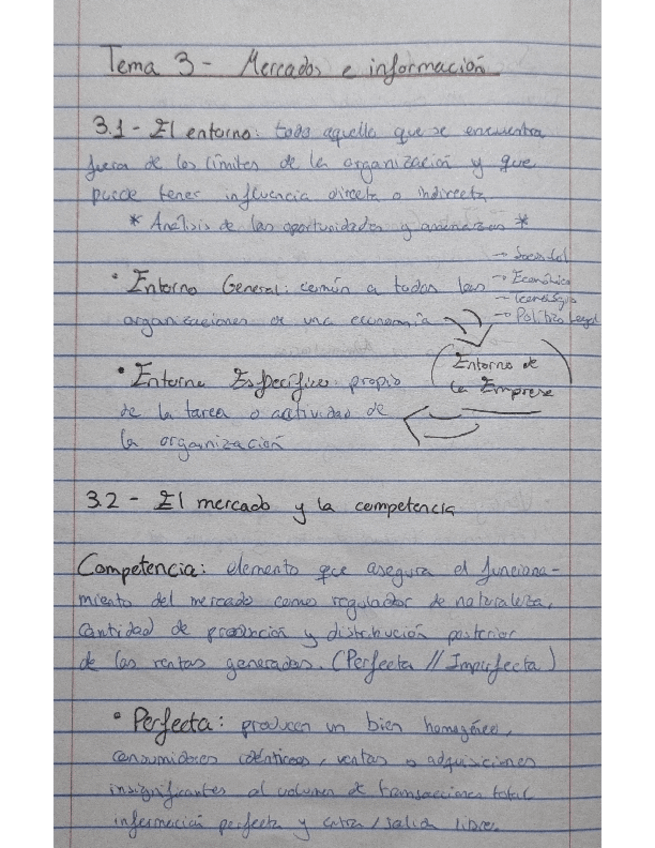 Tema 3 - Mercados e información
3.1 - El entorno: todo aquello que se encuentra
fuera de los límites de la organización y que
puede tener influencia directa o indirecta
* Análisis de las oportunidades y amenazas *
→ Sociocul
• Entorno General: común a todas las → Económico
→ Tecnológic
organizaciones de una economía → Político Legal
Entorno de
• Entorno Específico: propio la Empresa
de la tarea o actividad de
la organización
3.2 - El mercado y la competencia
Competencia: elemento que asegura el funciona-
miento del mercado como regulador de naturaleza,
cantidad de producción y distribución posterior
de las rentas generadas. (Perfecta // Imperfecta)
• Perfecta: producen un bien homogéneo,
consumidores idénticos, ventas o adquisiciones
insignificantes al volumen de transacciones total
información perfecta y entra/salida libre.